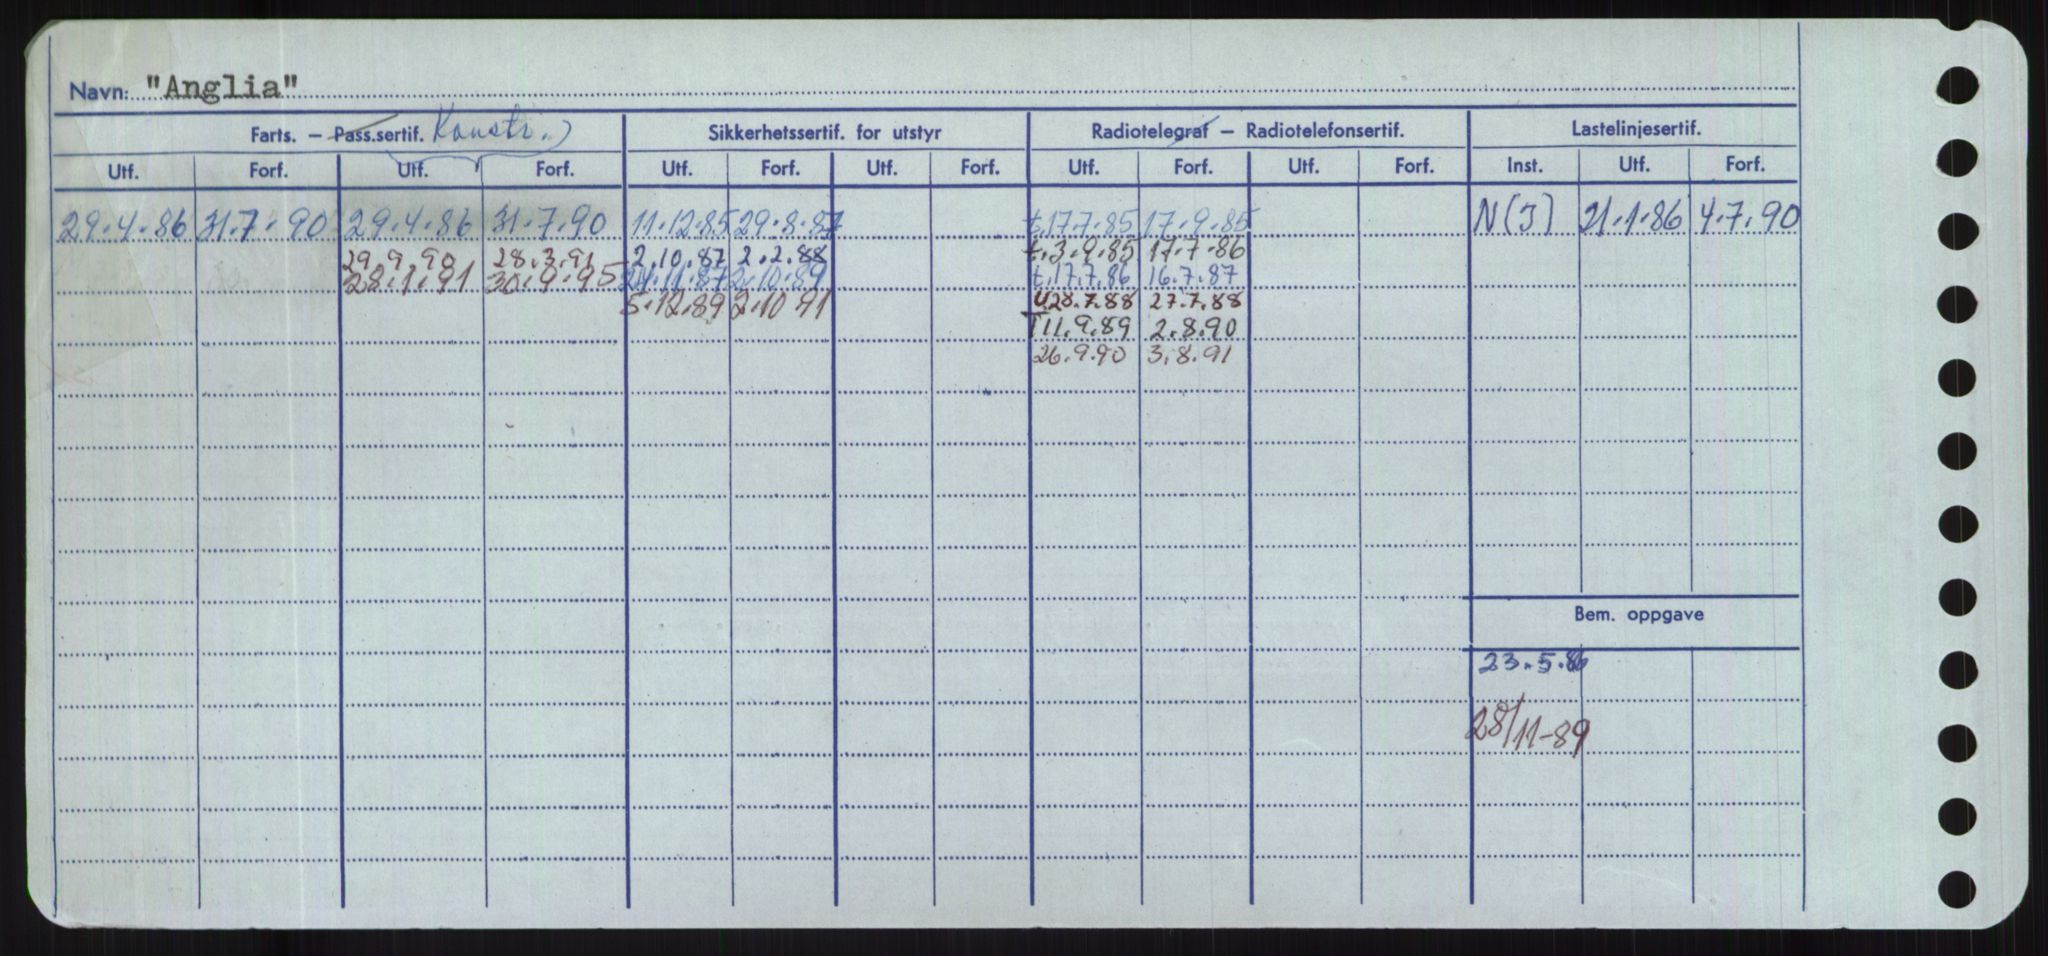 Navn: "Anglia"
Farts. – Pass.sertif. Konstr. Sikkerhetssertif. for utstyr Radiotelegraf – Radiotelefonsertif. Lastelinjesertif.
Utf. Forf. Utf. Forf. Utf. Forf. Utf. Forf. Utf. Forf. Utf. Forf. Inst. Utf. Forf.
29.4.86 31.7.90 29.4.86 31.7.90 11.12.85 29.8.87 t.17.7.85 17.9.85 N(J) 21.1.86 4.7.90
29.9.90 28.3.91 2.10.87 2.2.88 t.3.9.85 17.7.86
28.1.91 30.9.95 24.11.87 2.10.89 t.17.7.86 16.7.87
5.12.89 2.10 91 28.7.88 27.7.88
T11.9.89 2.8.90
26.9.90 3.8.91
Bem. oppgave
23.5.86
28/11-89